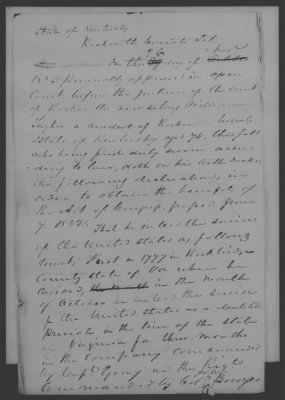 State of Kentucky
Rockcastle County Sct.
On the 26 day of Sept
1832 Personally appeared in open
Court before the Justices of the Court
of Rockcastle now siting William
Taylor a resident of Rockcastle County
State of Kentucky aged 74, this fall
who being first duly sworn accor-
ding to Law, doth on his oath make
the following declaration, in
order to obtain the benefit of
the Act of Congress, passed June
7, 1832. That he entered the service
of the United States as follows
towit, First in 1777 in Rockbridge
County State of Va where he
resided, in the month
of October he entered the service
of the United States as a
private in the line of the State
of Virginia for three months
in the Company commanded
by Capt. Gray in the Regt
Commanded by Col. Bowyer